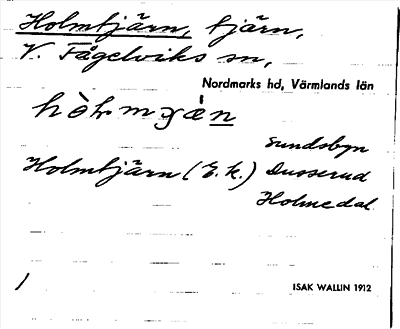 Holmtjärn, tjärn,
V. Fågelviks sn,
Nordmarks hd, Värmlands län
Sundsbyn
Holmtjärn (E.k.) Dusserud
Holmedal
ISAK WALLIN 1912